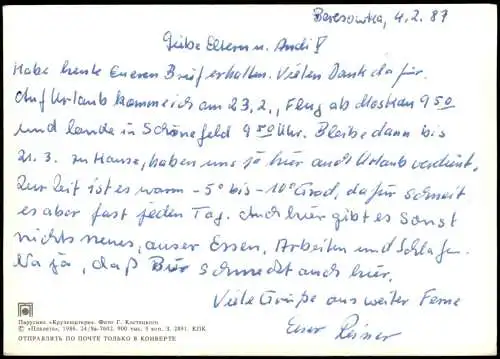 Beresowka, 4.2.87
Liebe Eltern u. Andi!
Habe heute Eueren Brief erhalten. Vielen Dank dafür.
Auf Urlaub komme ich am 23.2., Flug ab Moskau 9 50
und lande in Schönefeld 9 50 Uhr. Bleibe dann bis
21.3. zu Hause, haben uns ja hier auch Urlaub verdient.
Zur Zeit ist es warm -5° bis -10° Grad, dafür schneit
es aber fast jeden Tag. Auch hier gibt es sonst
nichts neues, auser Essen, Arbeiten und Schlafen.
Na ja, daß Bier schmeckt auch hier.
Viele Grüße aus weiter Ferne
Euer Reiner
Парусник «Крузенштерн». Фото Г. Костецкого
© «Плакат», 1986. 24/9а-7602. 900 тыс. 5 коп. З. 2891. КПК
ОТПРАВЛЯТЬ ПО ПОЧТЕ ТОЛЬКО В КОНВЕРТЕ